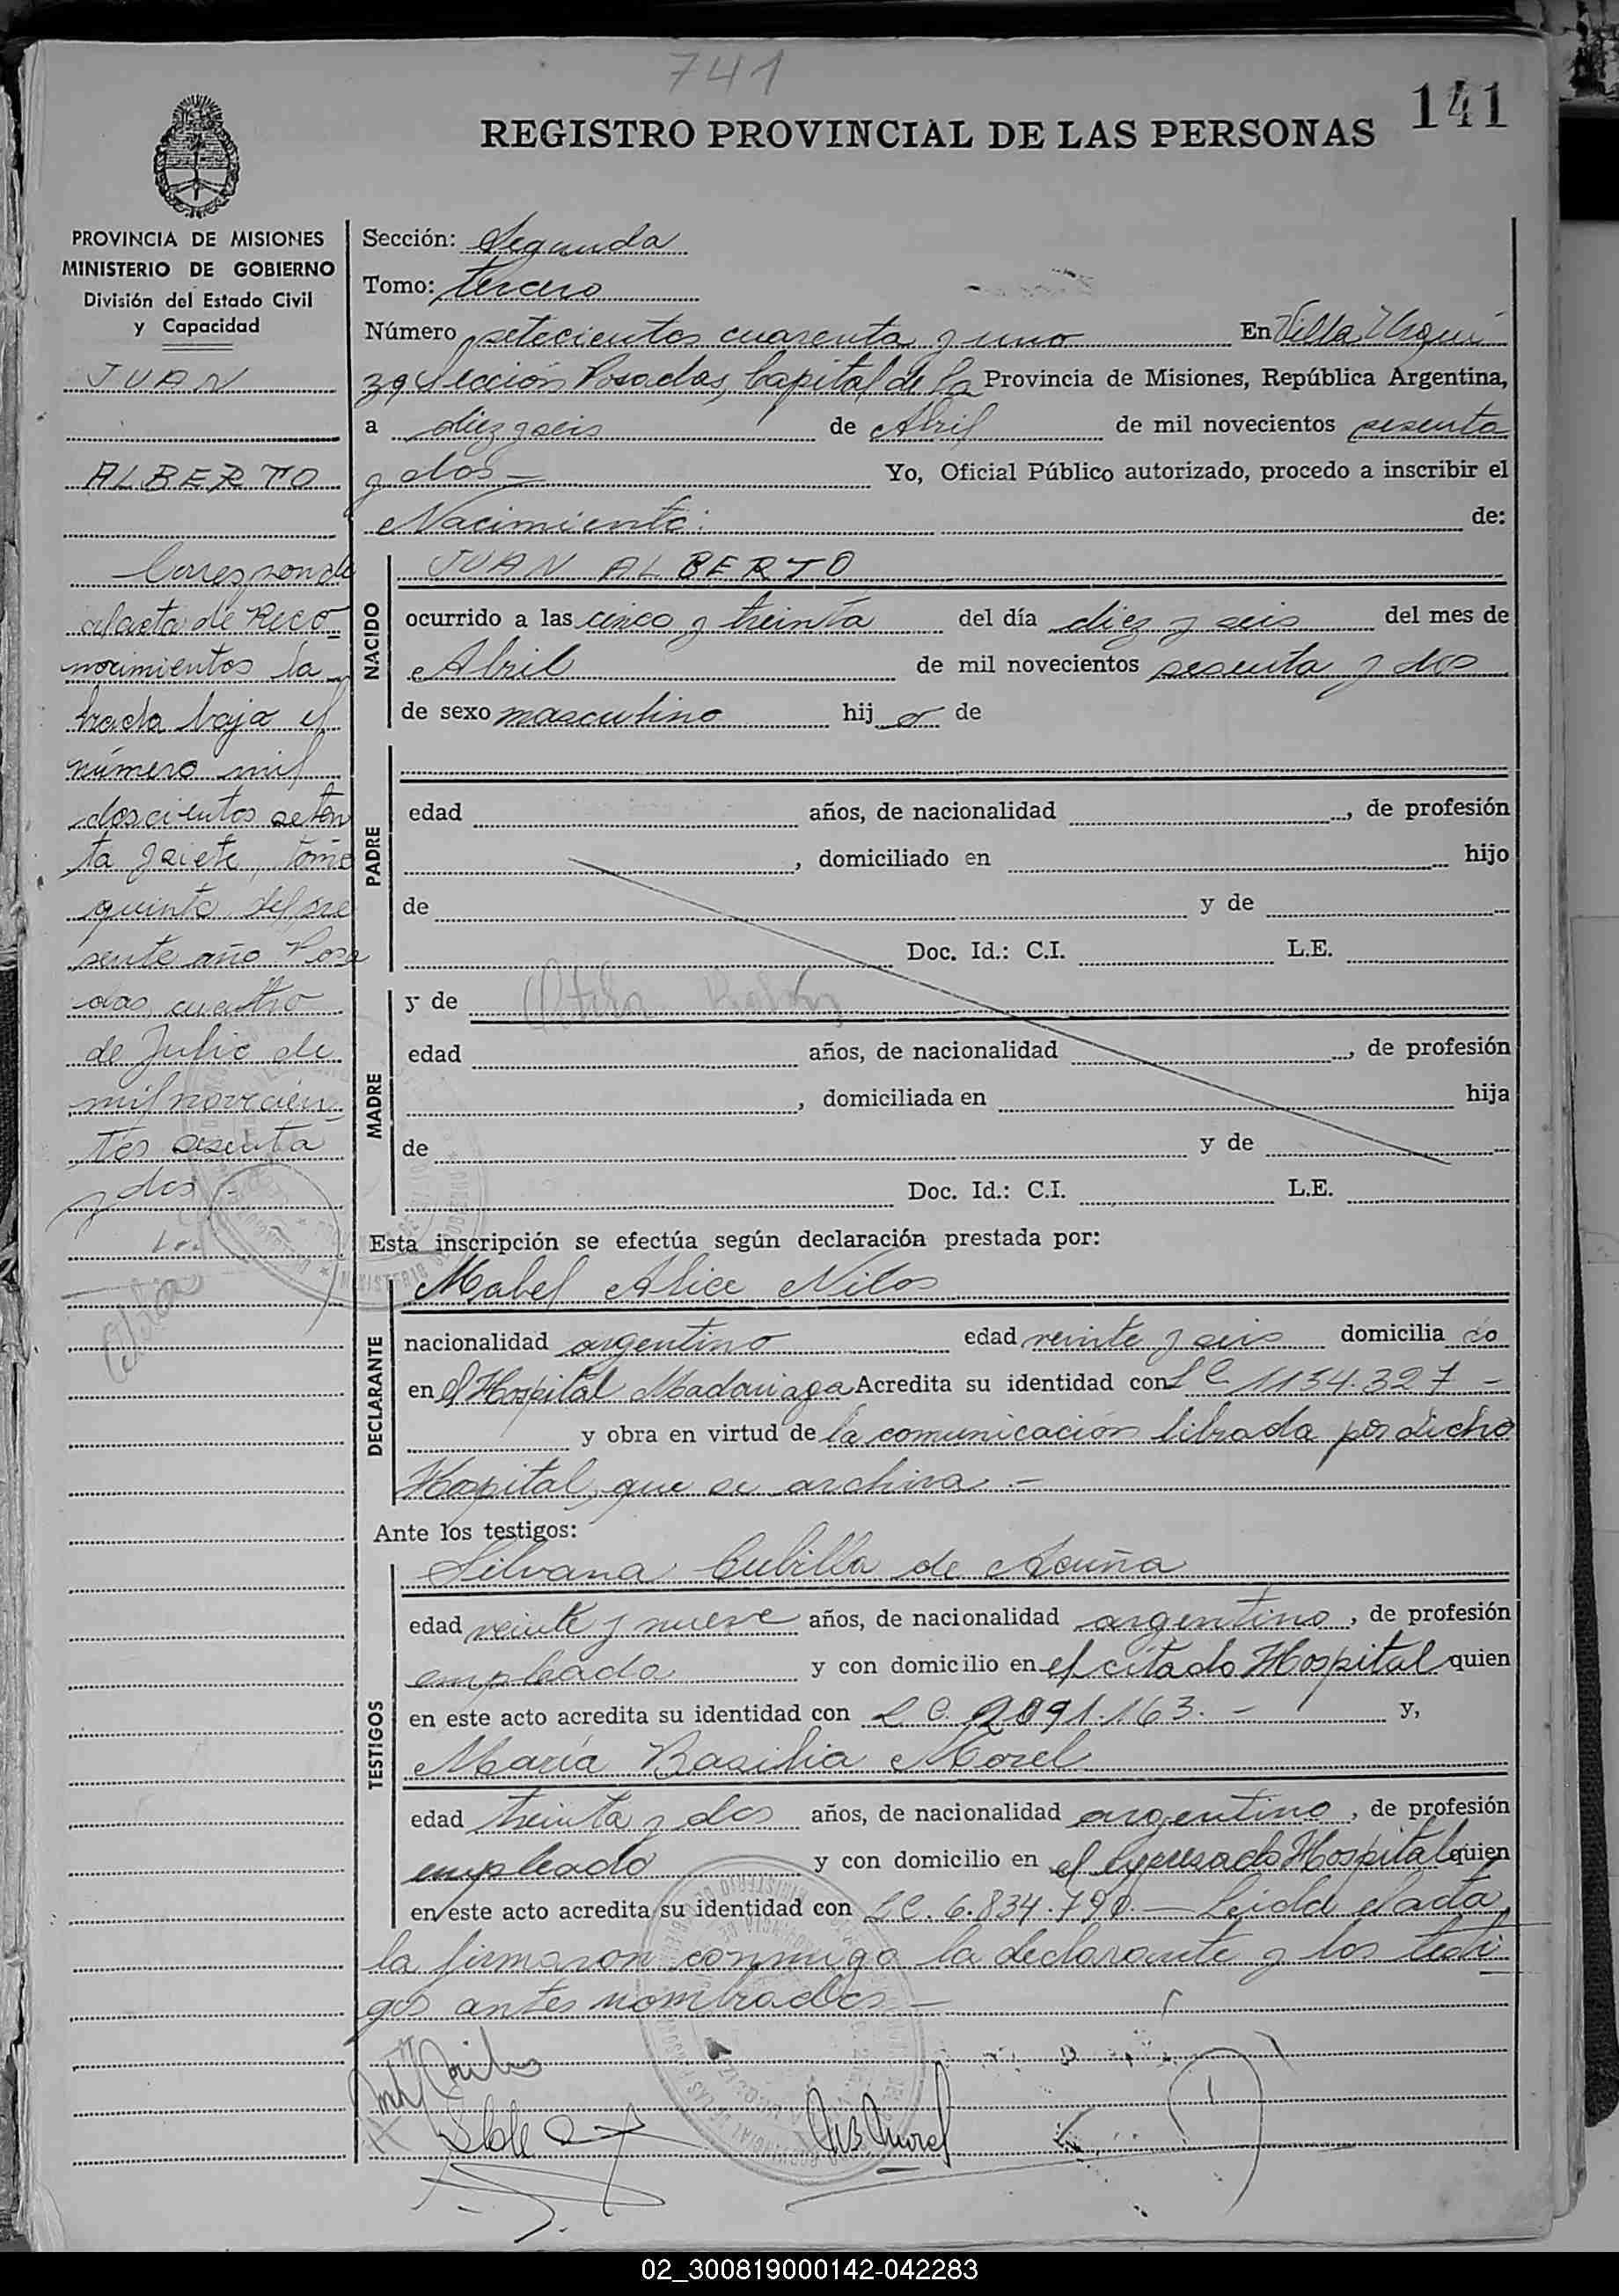 741
141
REGISTRO PROVINCIAL DE LAS PERSONAS
PROVINCIA DE MISIONES
MINISTERIO DE GOBIERNO
División del Estado Civil
y Capacidad
JUAN
ALBERTO
Corresponde
al acta de Reco
nocimientos la
brada bajo el
número mil
doscientos seten
ta y siete, tomo
quinto del pre
sente año Posa
das, cuatro
de Julio de
mil novecien
tos sesenta
y dos.-
Sección: Segunda
Tomo: tercero
Número setecientos cuarenta y uno En Villa Urqui
za Sección Posadas, Capital de la Provincia de Misiones, República Argentina,
a diez y seis de Abril de mil novecientos sesenta
y dos - Yo, Oficial Público autorizado, procedo a inscribir el
Nacimiento: de:
NACIDO
JUAN ALBERTO
ocurrido a las cinco y treinta del día diez y seis del mes de
Abril de mil novecientos sesenta y dos
de sexo masculino hij o de
PADRE
edad años, de nacionalidad , de profesión
, domiciliado en hijo
de y de
Doc. Id.: C.I. L.E.
MADRE
y de
edad años, de nacionalidad , de profesión
, domiciliada en hija
de y de
Doc. Id.: C.I. L.E.
Esta inscripción se efectúa según declaración prestada por:
DECLARANTE
Mabel Alice Nilos
nacionalidad argentino edad veinte y seis domicilia do
en el Hospital Madariaga Acredita su identidad con L C 1154.327 -
y obra en virtud de la comunicación librada por dicho
Hospital, que se archiva.-
Ante los testigos:
TESTIGOS
Silvana Cubilla de Acuña
edad veinte y nueve años, de nacionalidad argentino, de profesión
empleado y con domicilio en el citado Hospital quien
en este acto acredita su identidad con L C. 2091.163.- y,
María Basilia Morel
edad treinta y dos años, de nacionalidad argentino, de profesión
empleado y con domicilio en el expresado Hospital quien
en este acto acredita su identidad con L C. 6.834.790.- Leida el acta,
la firmaron conmigo la declarante y los testi
gos antes nombrados.-
02_300819000142-042283